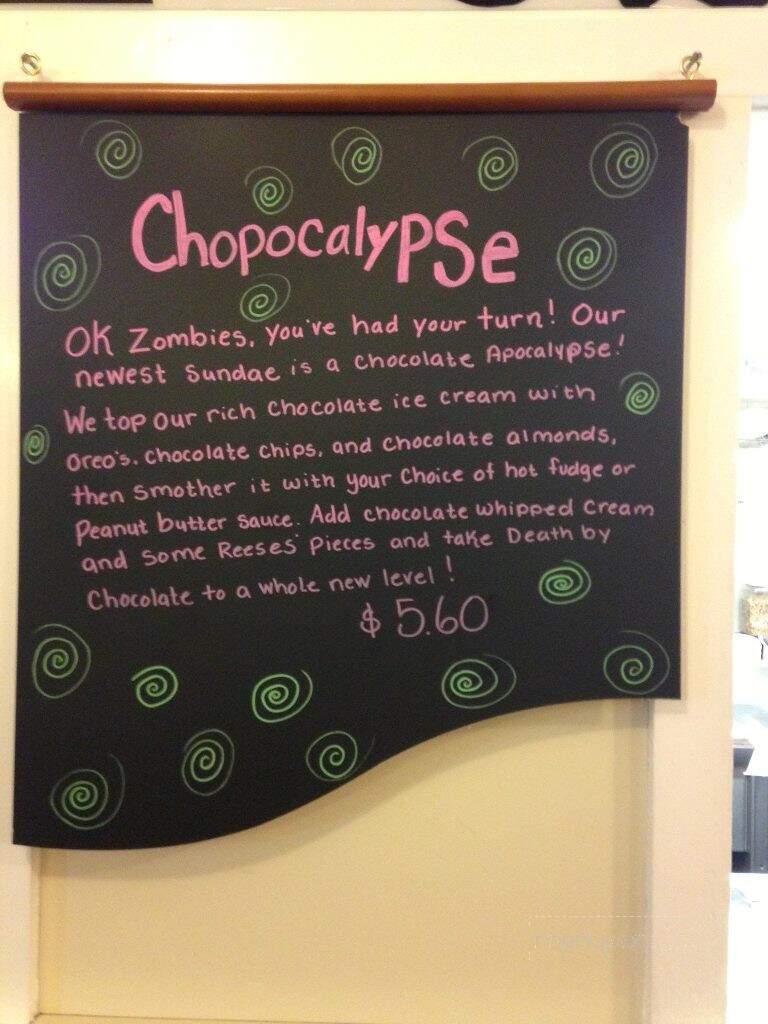 Chopocalypse
OK Zombies, you've had your turn! Our
newest Sundae is a Chocolate Apocalypse!
We top our rich Chocolate ice cream with
Oreo's, chocolate chips, and chocolate almonds,
then smother it with your choice of hot fudge or
Peanut butter sauce. Add chocolate whipped Cream
and some Reeses' Pieces and take Death by
Chocolate to a whole new level!
$ 5.60